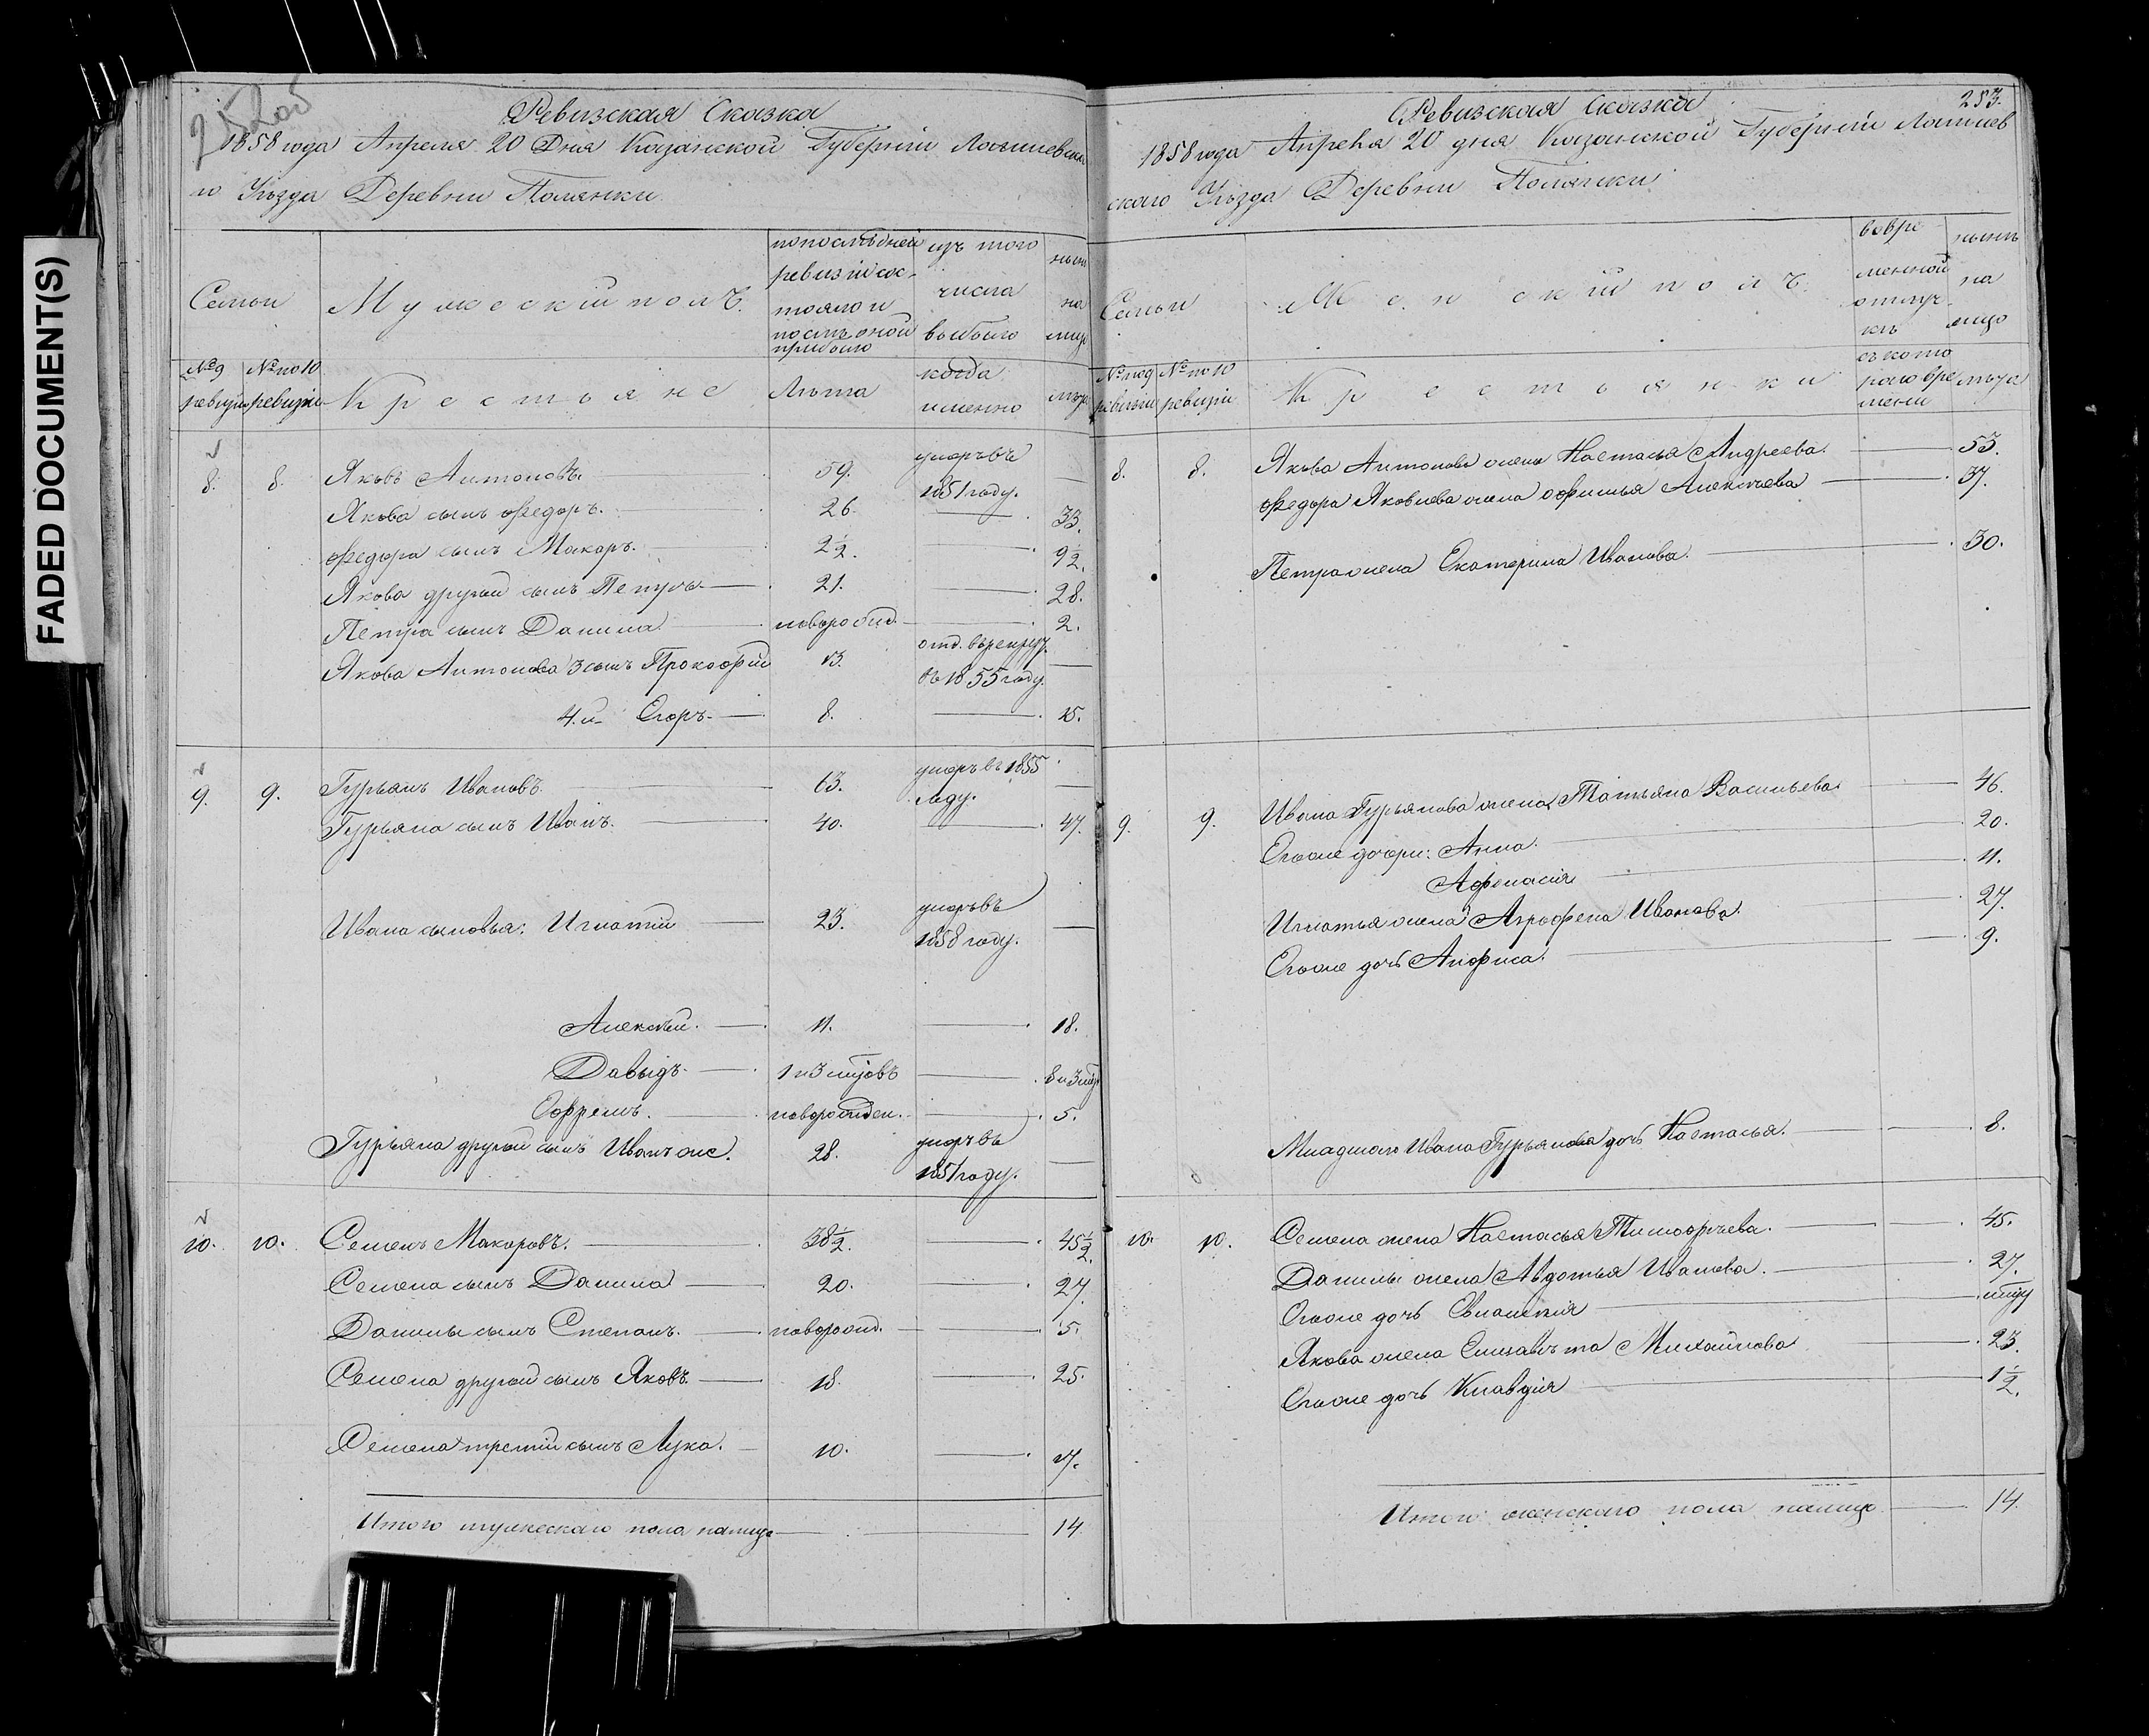 FADED DOCUMENT(S)
252об
Ревизская Сказка
1858 года Апреля 20 Дня Казанской Губерніи Лаишевска
го Уѣзда Деревни Полянки
Семьи
Мужескій полъ.
по послѣдней
ревизіи сос-
тояло и
послѣ оной
прибыло
изъ того
числа
выбыло
нынѣ
на
лицо
№ 9
ревизіи
№ по 10
ревизіи
Крестьяне
Лѣта
когда
именно
лѣта
8. 8. Яковъ Антоновъ. 59. умеръ въ
1851 году.
Якова сынъ Федоръ. 26. 33.
Федора сынъ Макаръ. 2½. 9½.
Якова другой сынъ Петръ. 21. 28.
Петра сынъ Данила новорожд. 2.
Якова Антонова 3 сынъ Прокофій 13. отд. въ рекруты
въ 1855 году.
4.й Егоръ. 8. 15.
9. 9. Гурьянъ Ивановъ. 63. умеръ въ 1855
году.
Гурьяна сынъ Иванъ. 40. 47.
Ивана сыновья: Игнатій 23. умеръ въ
1858 году.
Алексѣй. 11. 18.
Давыдъ. 1 и 3 мѣсцовъ 8 и 3 мѣс
Ефремъ. новорожден. 5.
Гурьяна другой сынъ Иванъ же. 28. умеръ въ
1851 году.
10. 10. Семенъ Макаровъ. 38½. 45½.
Семена сынъ Данила 20. 27.
Данилы сынъ Степанъ. новорожд. 5.
Семена другой сынъ Яковъ. 18. 25.
Семена третій сынъ Лука. 10. 17.
Итого мужескаго пола налицо 14
253.
Ревизская Сказка
1858 года Апреля 20 дня Казанской Губерніи Лаишев
скаго Уѣзда Деревни Полянки
Семьи
Женскій полъ.
во вре-
менной
отлуч-
кѣ
нынѣ
на
лицо
№ по 9
ревизіи
№ по 10
ревизіи
Крестьянки
съ кото
раго вре
мени
лѣта
8. 8. Якова Антонова жена Настасья Андреева. 53.
Федора Яковлева жена Офимья Алексѣева 37.
Петра жена Екатерина Иванова. 30.
9. 9. Ивана Гурьянова жена Татьяна Васильева 46.
Егоже дочери: Анна. 20.
Афенасія 11.
Игнатья жена Аграфена Иванова. 27.
Егоже дочь Анфиса. 9.
Младшаго Ивана Гурьянова дочь Настасья. 8.
10. 10. Семена жена Настасья Тимофѣева. 45.
Данилы жена Авдотья Иванова. 27.
Егоже дочь
Якова жена Елизавѣта Михайлова 23.
Егоже дочь Клавдія 1½.
Итого женскаго пола налицо 14.